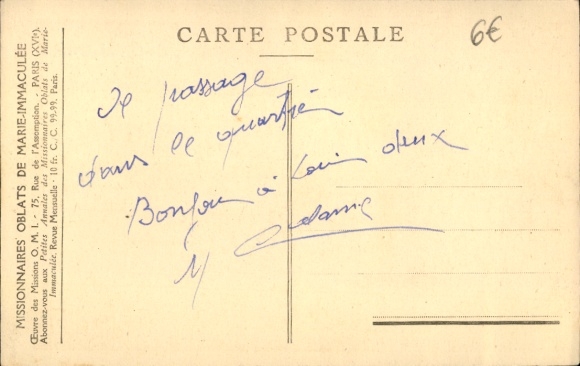 CARTE POSTALE
6€
MISSIONNAIRES OBLATS DE MARIE-IMMACULÉE
Œuvre des Missions O. M. I. - 75, Rue de l'Assomption. - PARIS (XVIe).
Abonnez-vous aux Petites Annales des Missionnaires Oblats de Marie-
Immaculée. Revue Mensuelle - 10 fr. C. C. 99.99. Paris.
De passage
dans le quartier
Bonjour à deux